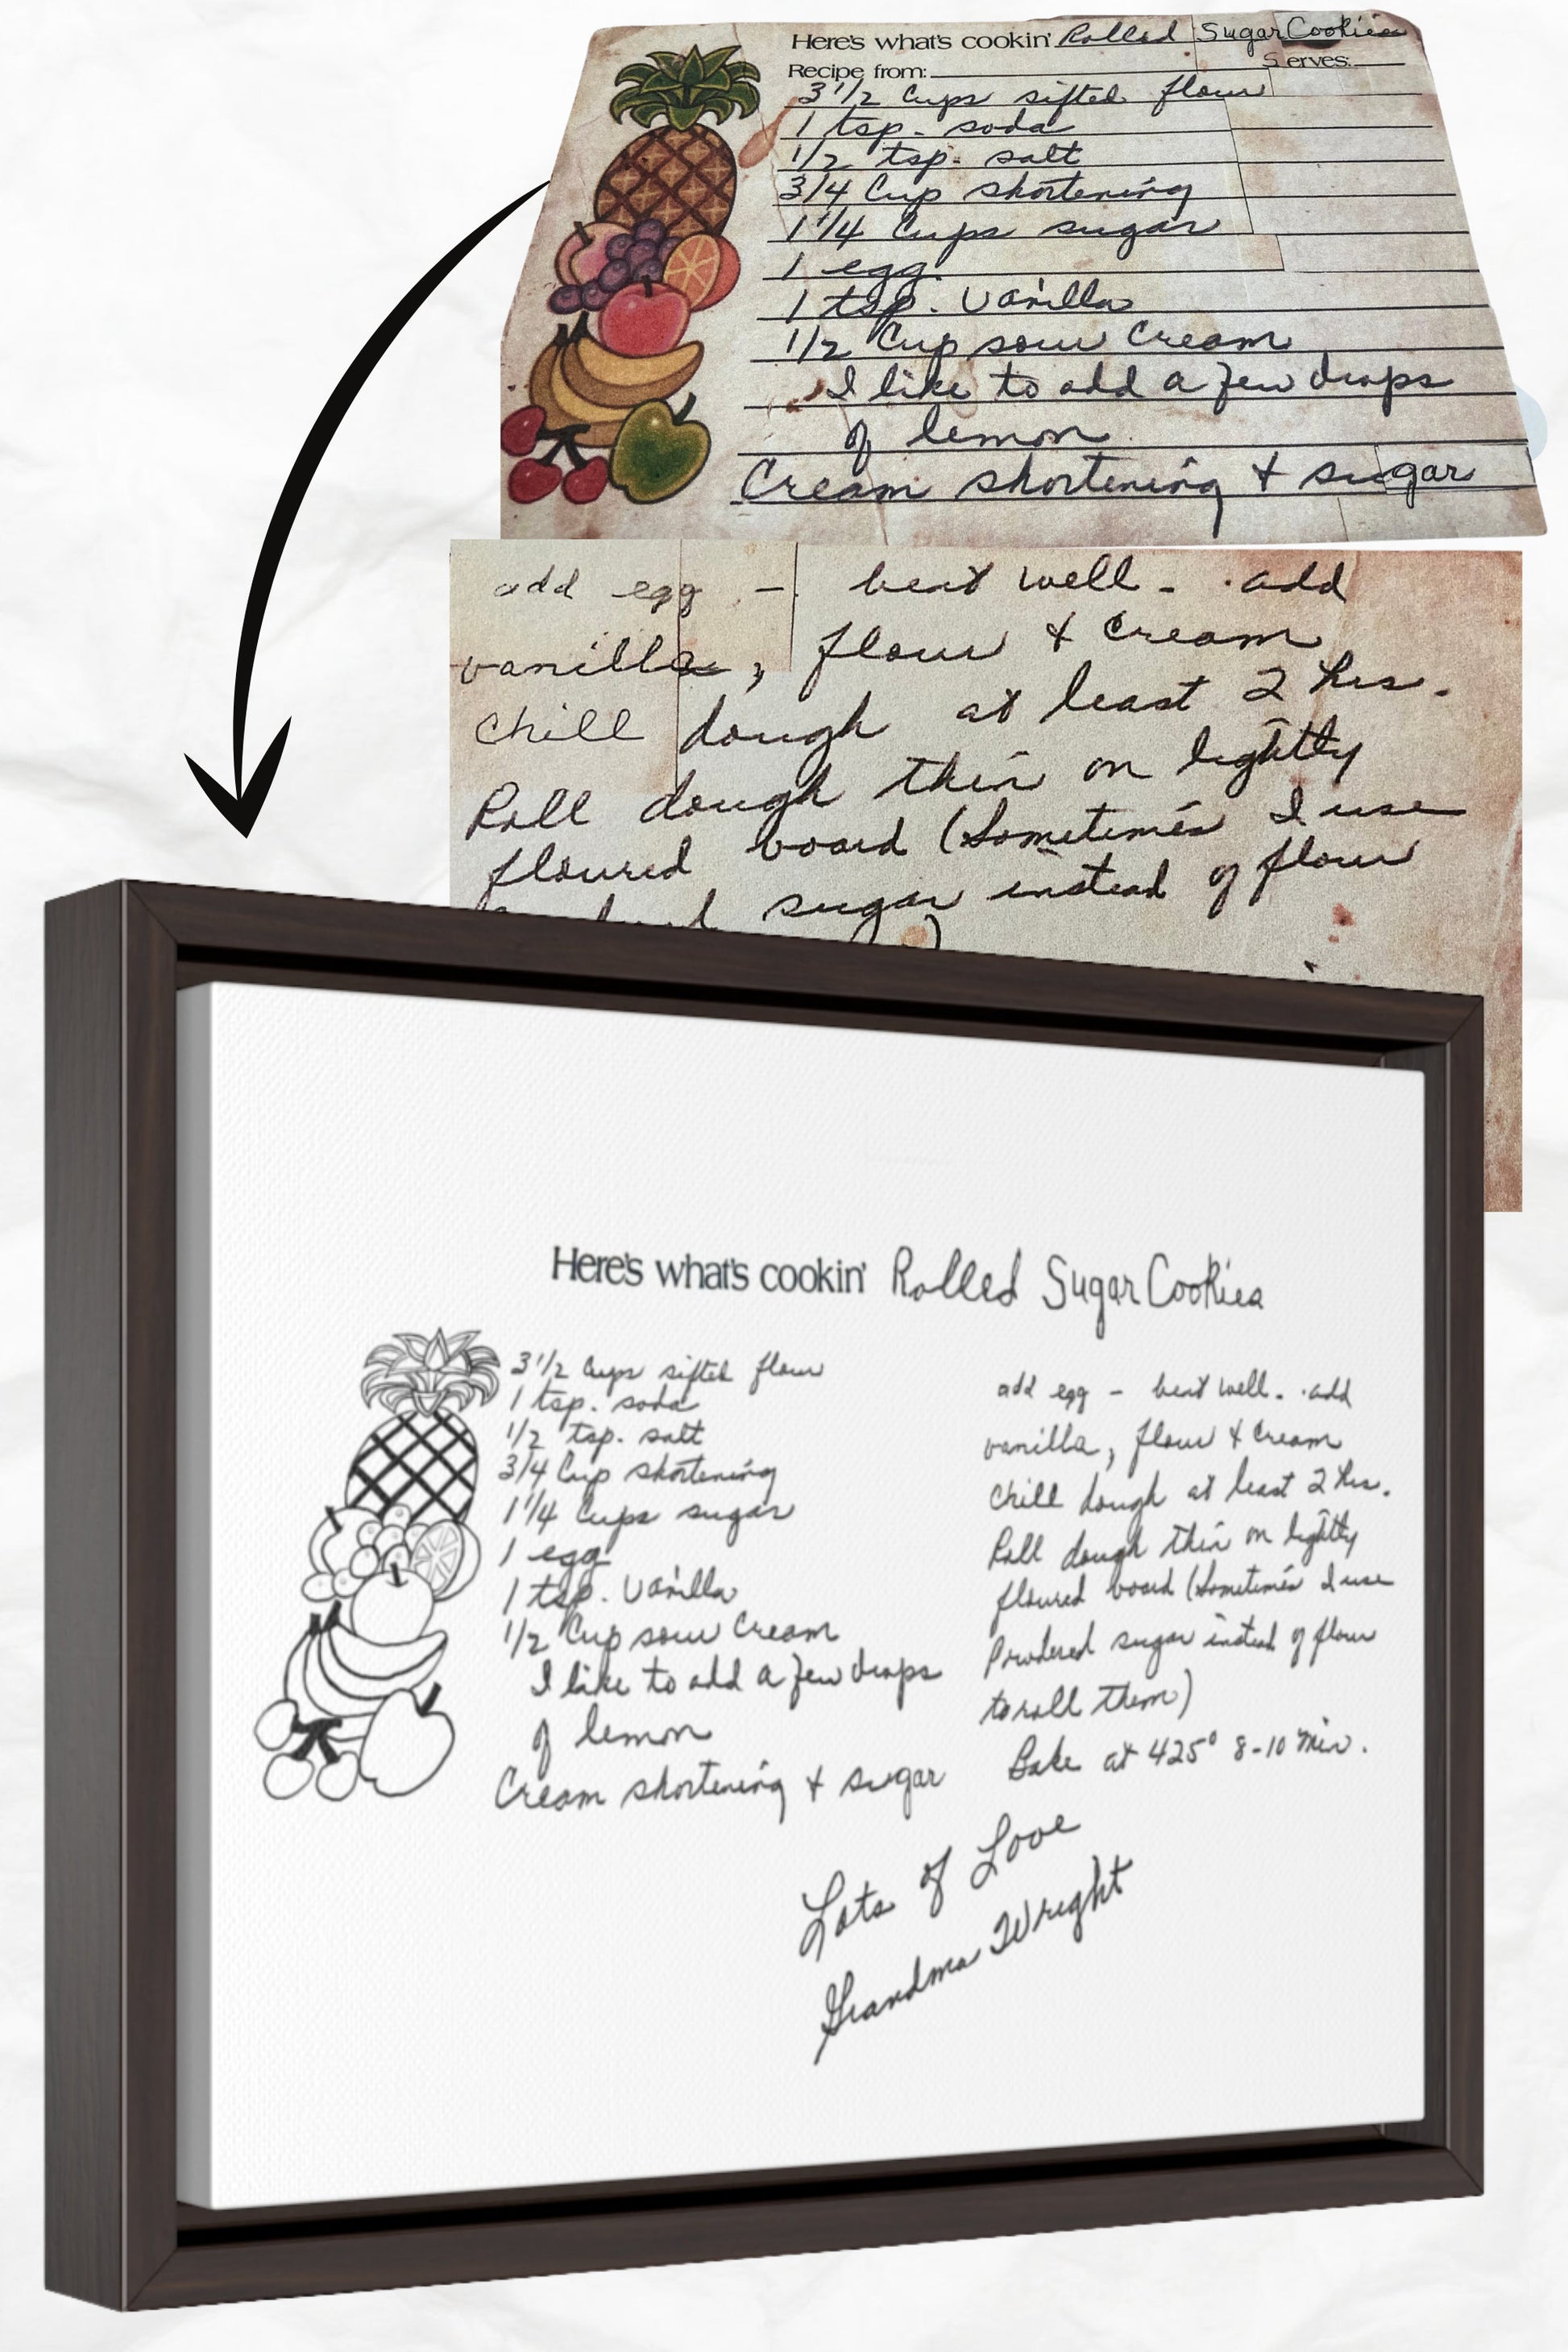 Here's what's cookin' Rolled Sugar Cookies
Recipe from: Serves:
3 1/2 Cups sifted flour
1 tsp. soda
1/2 tsp. salt
3/4 Cup shortening
1 1/4 Cups sugar
1 egg
1 tsp. Vanilla
1/2 Cup sour Cream
I like to add a few drops
of lemon
Cream shortening + sugar
add egg - beat well - add
vanilla, flour + Cream
Chill dough at least 2 hrs.
Roll dough thin on lightly
floured board (Sometimes I use
sugar instead of flour
Here's what's cookin' Rolled Sugar Cookies
3 1/2 Cups sifted flour
1 tsp. soda
1/2 tsp. salt
3/4 Cup shortening
1 1/4 Cups sugar
1 egg
1 tsp. Vanilla
1/2 Cup sour Cream
I like to add a few drops
of lemon
Cream shortening + sugar
add egg - beat well - add
vanilla, flour + Cream
Chill dough at least 2 hrs.
Roll dough thin on lightly
floured board (Sometimes I use
Powdered sugar instead of flour
to roll them)
Bake at 425° 8-10 min.
Lots of Love
Grandma Wright